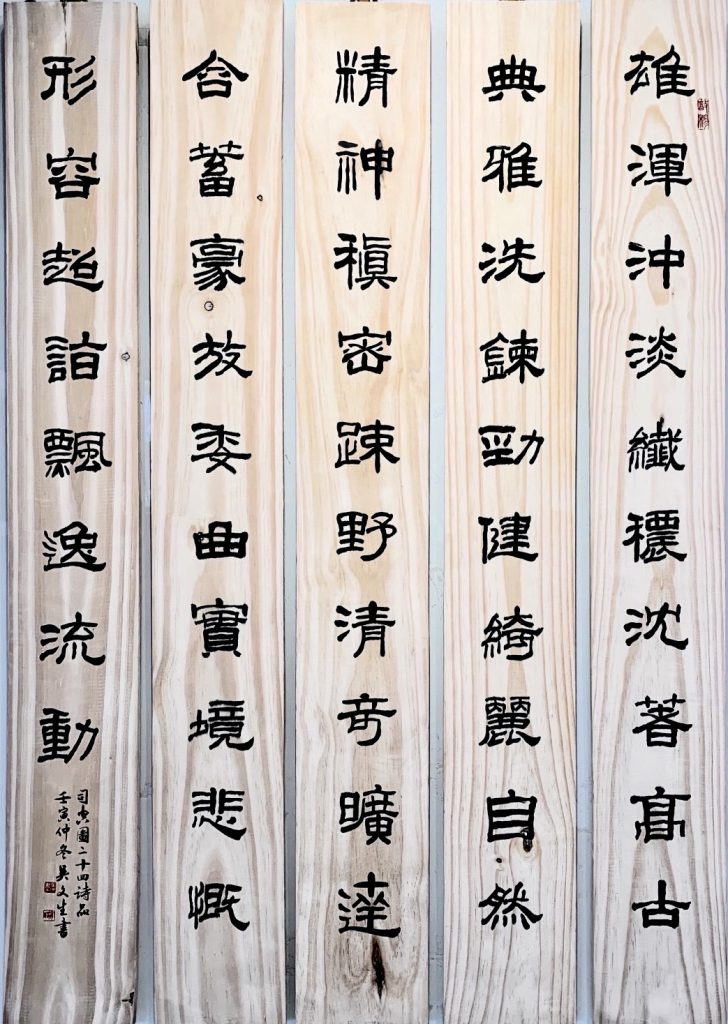 雄渾沖淡纖穠沈著高古
典雅洗鍊勁健綺麗自然
精神稹密疎野清奇曠達
含蓄豪放委曲實境悲慨
形容超詣飄逸流動
司空圖二十四詩品
壬寅仲冬吳文生書